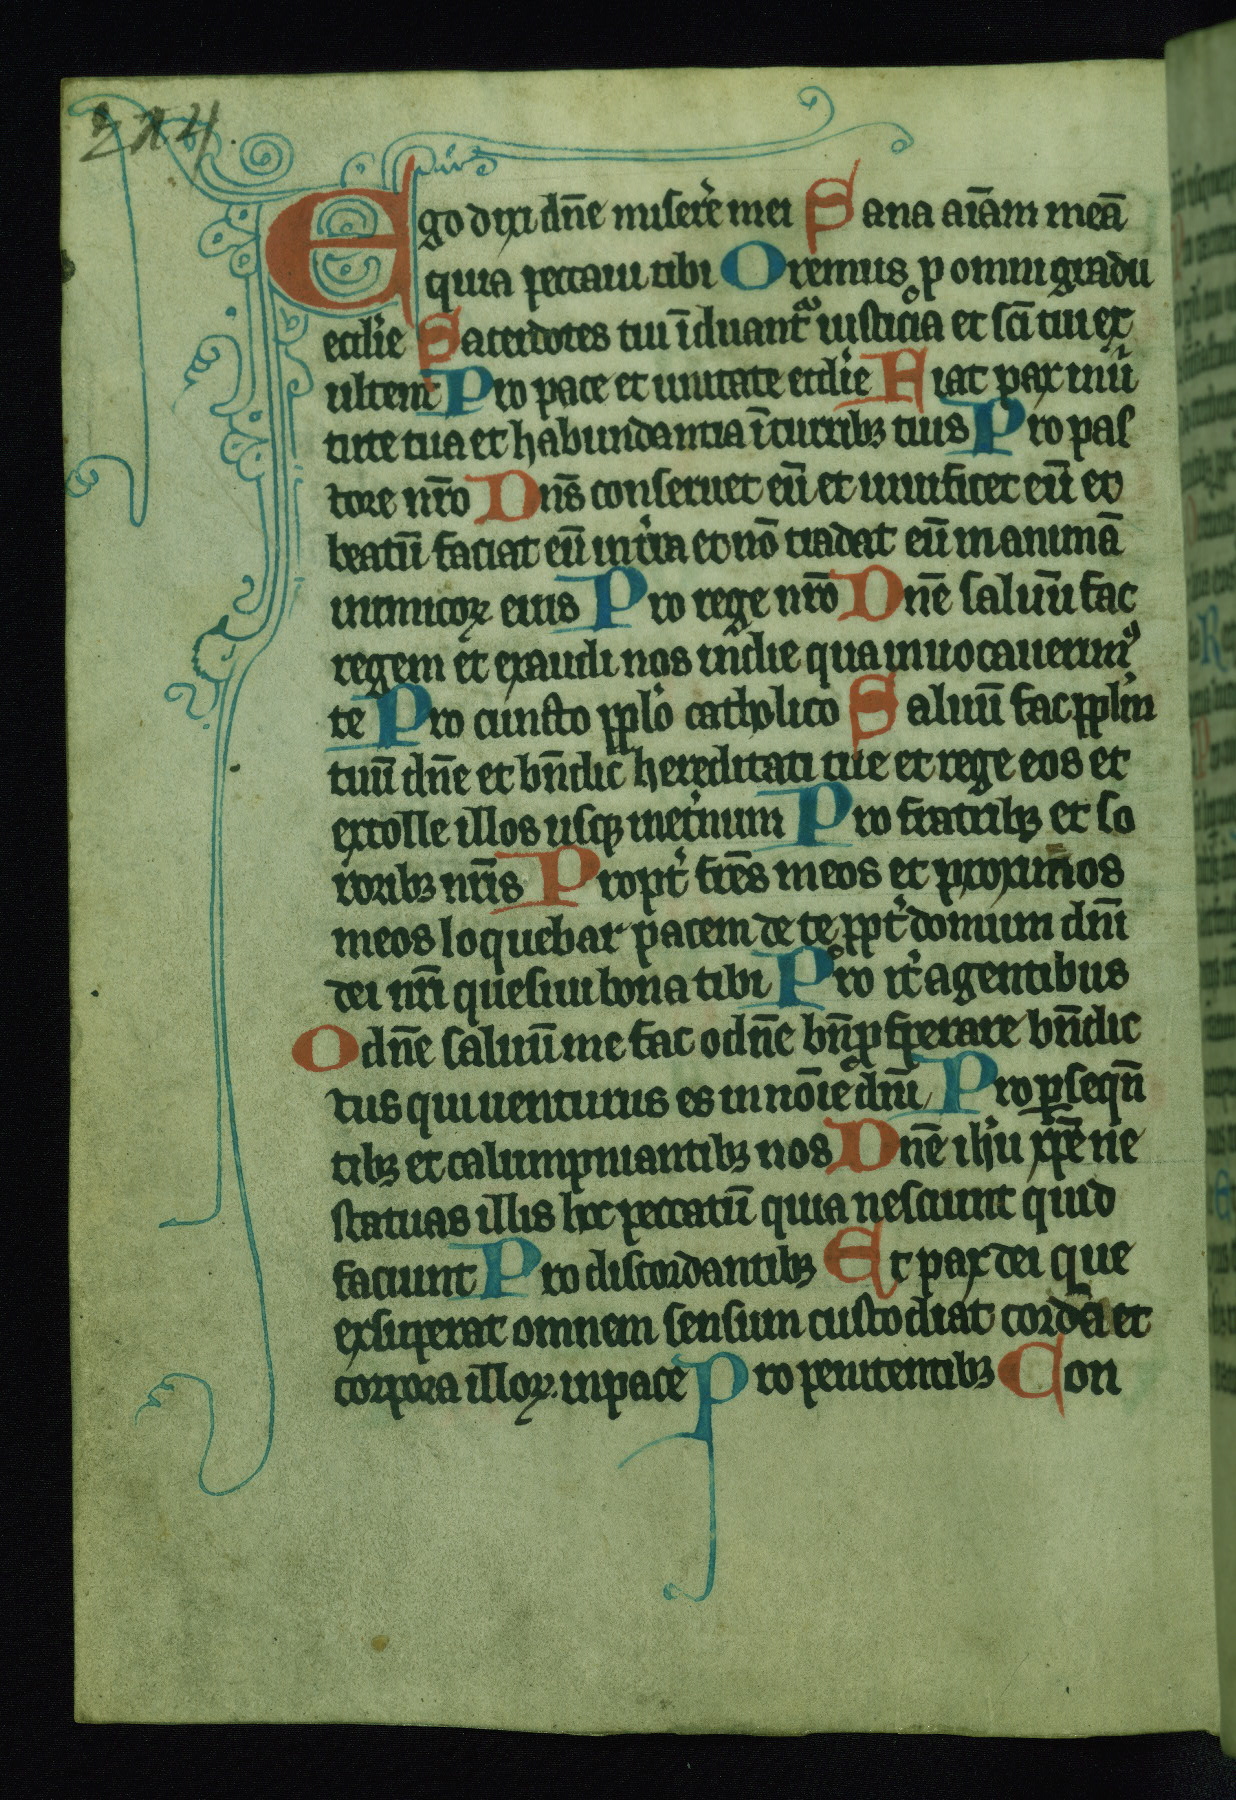 p̄ces
Ego dixi dn̄e misere̾ mei Sana aīam meā
quia peccaui tibi Oremus p omni gradu
eccl̓ie Sacerdotes tui īduantᷓ iusticia et sc̄i tui ex
ultent Pro pace et unitate eccl̓ie Fiat pax in uir̄
tute tua et habundantia ī turribꝫ tuis Pro pas
tore nr̄o Dn̄s conseruet eū et uiuificet eū et
beatū faciat eū in tr̓ra et nō tradat eū in animā
inimicoꝝ eius Pro rege nr̄o Dn̄e saluū fac
regem et exaudi nos in die qua inuocauerim᷒
te Pro cuncto ppl̓o catholico Saluū fac ppl̓m
tuū dn̄e et bn̄dic hereditati tue et rege eos et
extolle illos usqꝫ inet̓num Pro fratribꝫ et so
roribꝫ nr̄is Propt̓ fr̄es meos et proximos
meos loquebar pacem de te ppt̓ domum dn̄i
dei nr̄i quesiui bona tibi Pro it̓ agentibus
O dn̄e saluū me fac o dn̄e bn̄ pꝛosperare bn̄dic
tus qui uenturus es in noīe dn̄i Pro ꝑsequn̄
tibꝫ et calumpniantibꝫ nos Dn̄e ih̓u xp̄e ne
statuas illis hoc peccatū quia nesciunt quid
faciunt Pro discordantibꝫ Et pax dei que
exsuperat omnem sensum custodiat corda et
corpora illoꝝ in pace Pro penitentibꝫ Con